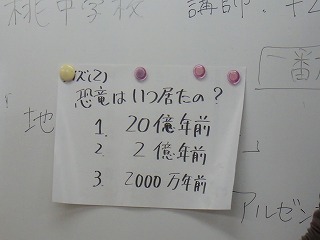 桃中学校 講師:
一番
クイズ(2)
恐竜はいつ居たの?
地
1. 20億年前
2. 2億年前
3. 2000万年前
アルゼン